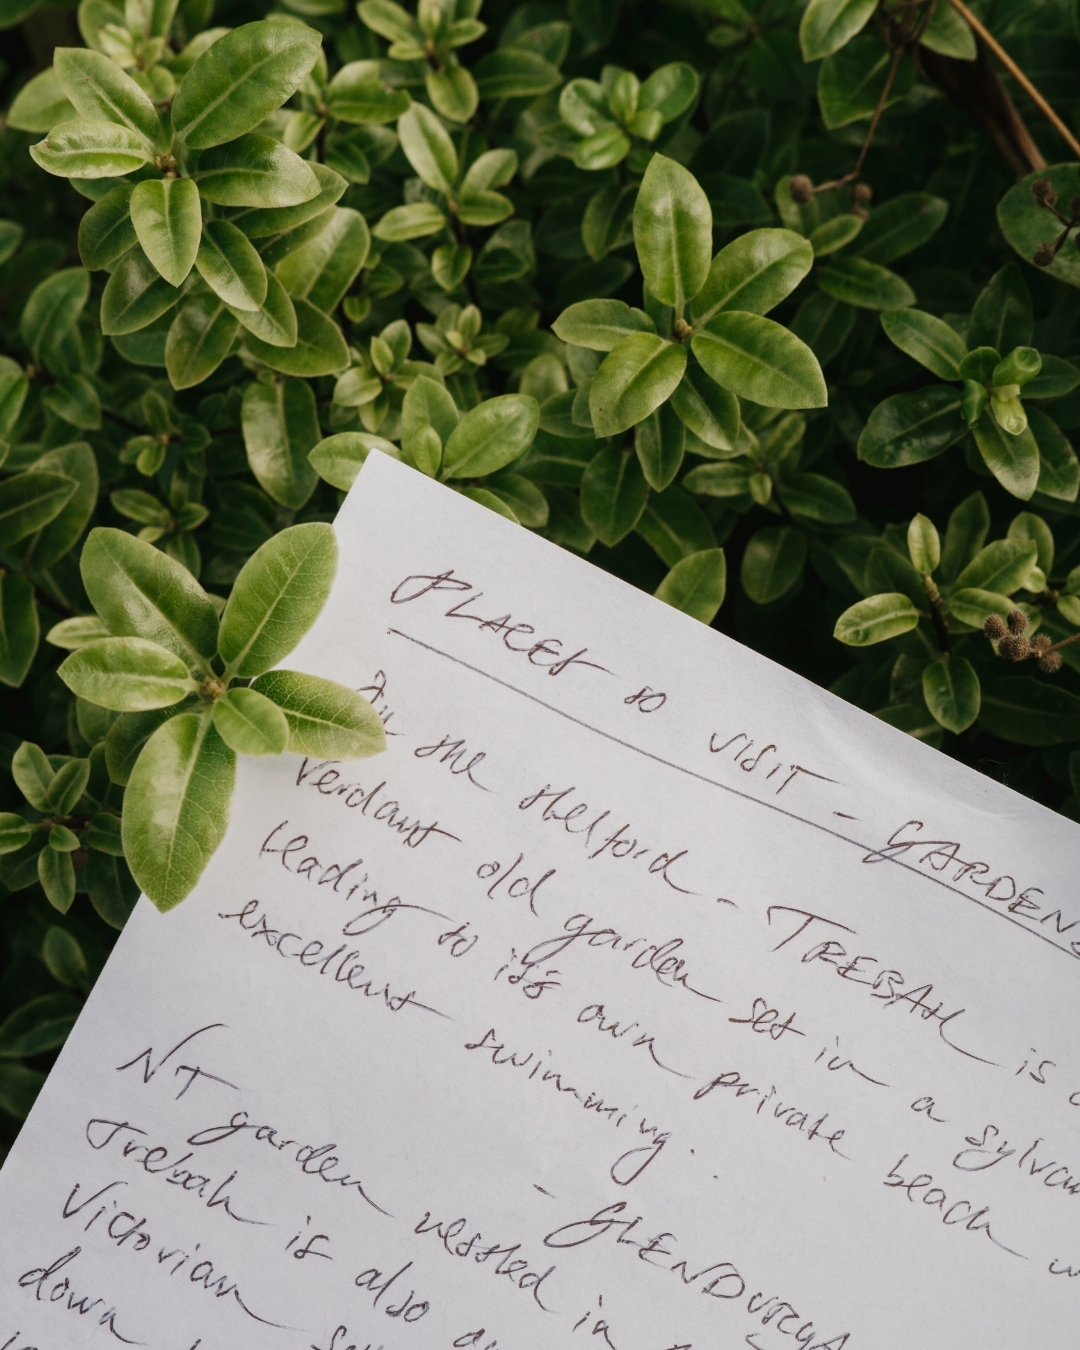 PLACES to VISIT - GARDENS
In the Helford - TREBAH is
Verdant old garden set in a
leading to it's own private beach
excellent swimming.
- GLENDURGA
NT garden nestled in
Trebah is also
Victorian
down